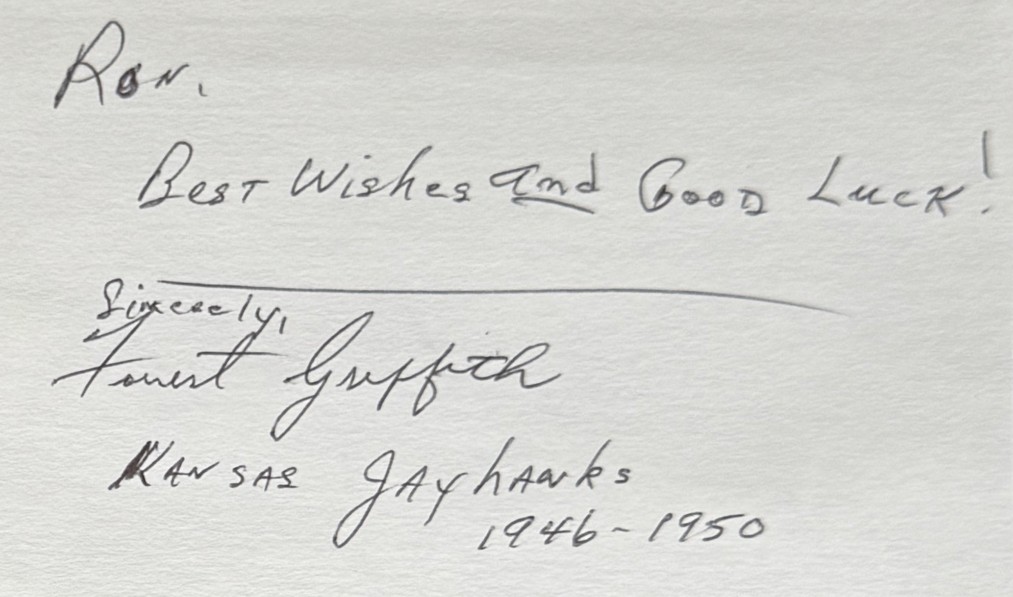 Ron.
Best Wishes and Good Luck!
Sincerely,
Forrest Griffith
Kansas Jayhawks
1946-1950